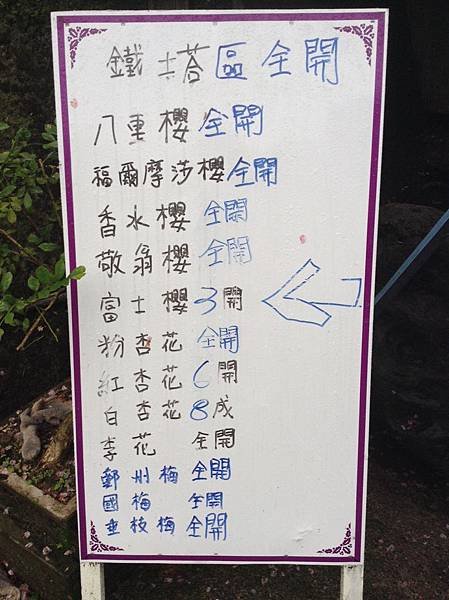 鐵塔區全開
八重櫻全開
福爾摩莎櫻全開
香水櫻全開
敬翁櫻全開
富士櫻3開
粉杏花全開
紅杏花6開
白杏花8成
李花全開
鄭州梅全開
國梅全開
垂枝梅全開